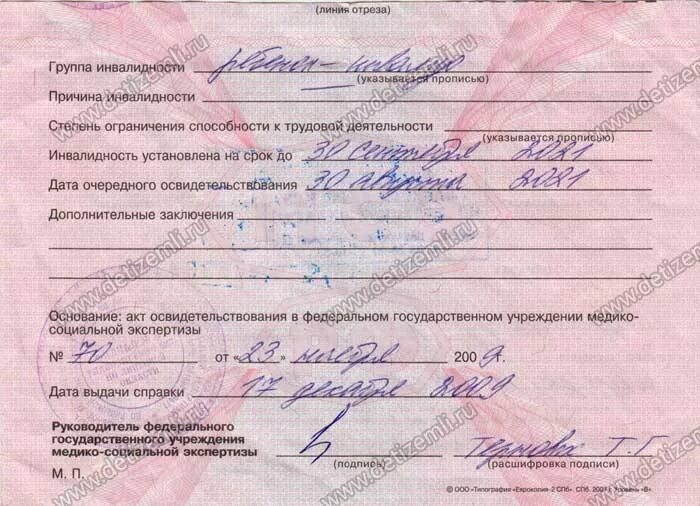 (линия отреза)
Группа инвалидности ребенок-инвалид
(указывается прописью)
Причина инвалидности
Степень ограничения способности к трудовой деятельности
(указывается прописью)
Инвалидность установлена на срок до 30 сентября 2021
Дата очередного освидетельствования 30 августа 2021
Дополнительные заключения
Основание: акт освидетельствования в федеральном государственном учреждении медико-
социальной экспертизы
№ 70 от «23» ноября 2009г.
Дата выдачи справки 17 декабря 2009
Руководитель федерального
государственного учреждения
медико-социальной экспертизы Т.Г
(подпись) (расшифровка подписи)
М. П.
© ООО «Типография «Еврокопия-2 СПб» СПб. 2007 г. Уровень «В»
www.detizemli.ru